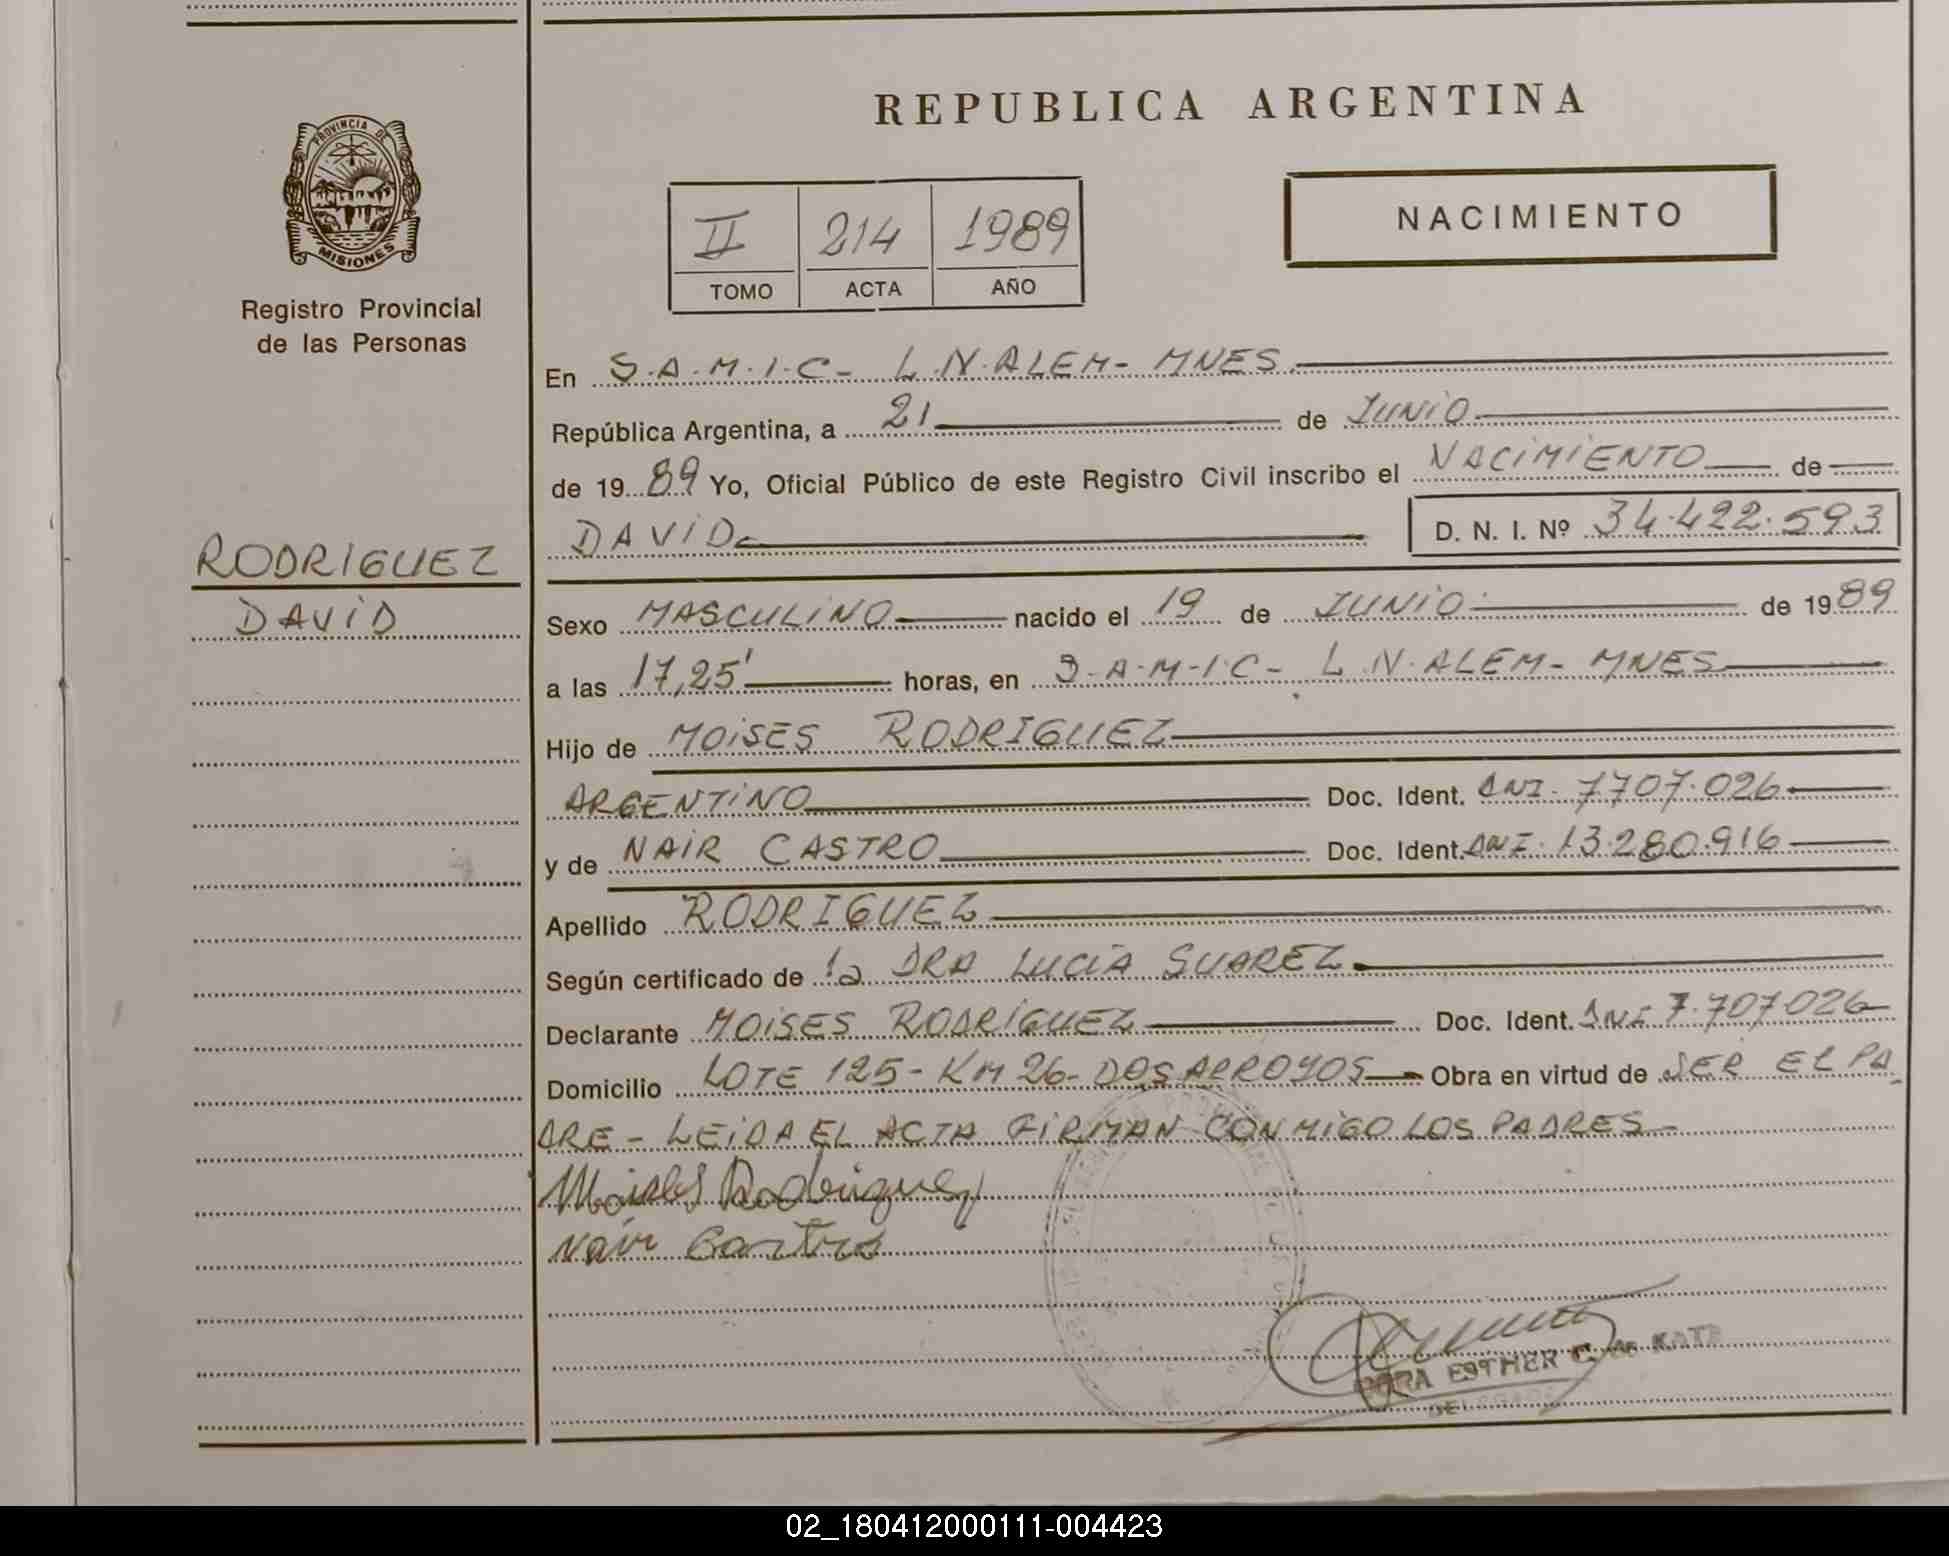 REPUBLICA ARGENTINA
PROVINCIA DE
MISIONES
Registro Provincial
de las Personas
II 214 1989
TOMO ACTA AÑO
NACIMIENTO
RODRIGUEZ
DAVID
En S.A.M.I.C- L.N.ALEM- MNES
República Argentina, a 21 de JUNIO
de 1989 Yo, Oficial Público de este Registro Civil inscribo el NACIMIENTO de
DAVID D. N. I. Nº 34.422.593
Sexo MASCULINO nacido el 19 de JUNIO de 1989
a las 17,25' horas, en S.A.M.I.C- L.N.ALEM- MNES
Hijo de MOISES RODRIGUEZ
ARGENTINO Doc. Ident. DNI. 7707.026
y de NAIR CASTRO Doc. Ident. DNI. 13.280.916
Apellido RODRIGUEZ
Según certificado de la DRA LUCIA SUAREZ
Declarante MOISES RODRIGUEZ Doc. Ident. DNI 7.707.026
Domicilio LOTE 125- KM 26- DOS ARROYOS Obra en virtud de SER EL PA
DRE - LEIDA EL ACTA FIRMAN CONMIGO LOS PADRES
Moises Rodriguez
Nair Castro
ESTHER C. de KATZ
02_180412000111-004423